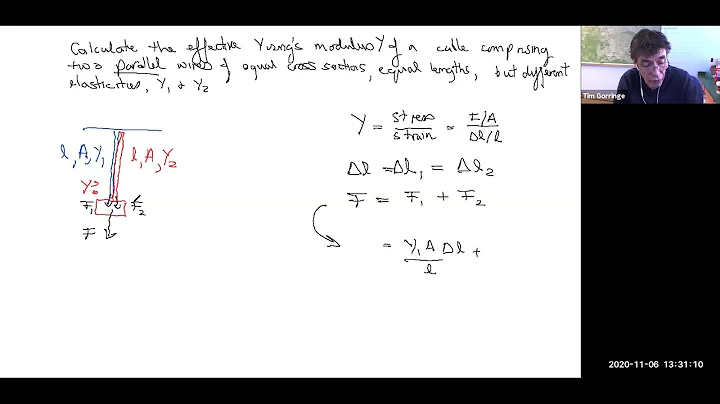 Calculate the effective Young's modulus Y of a cable comprising
two parallel wires of equal cross sections, equal lengths, but different
elasticities, Y₁ & Y₂
l, A, Y₁
l, A, Y₂
Y?
F₁
F₂
F
Y = stress/strain = F/A / Δl/l
Δl = Δl₁ = Δl₂
F = F₁ + F₂
= Y₁A/l Δl +
Tim Gorringe
2020-11-06 13:31:10